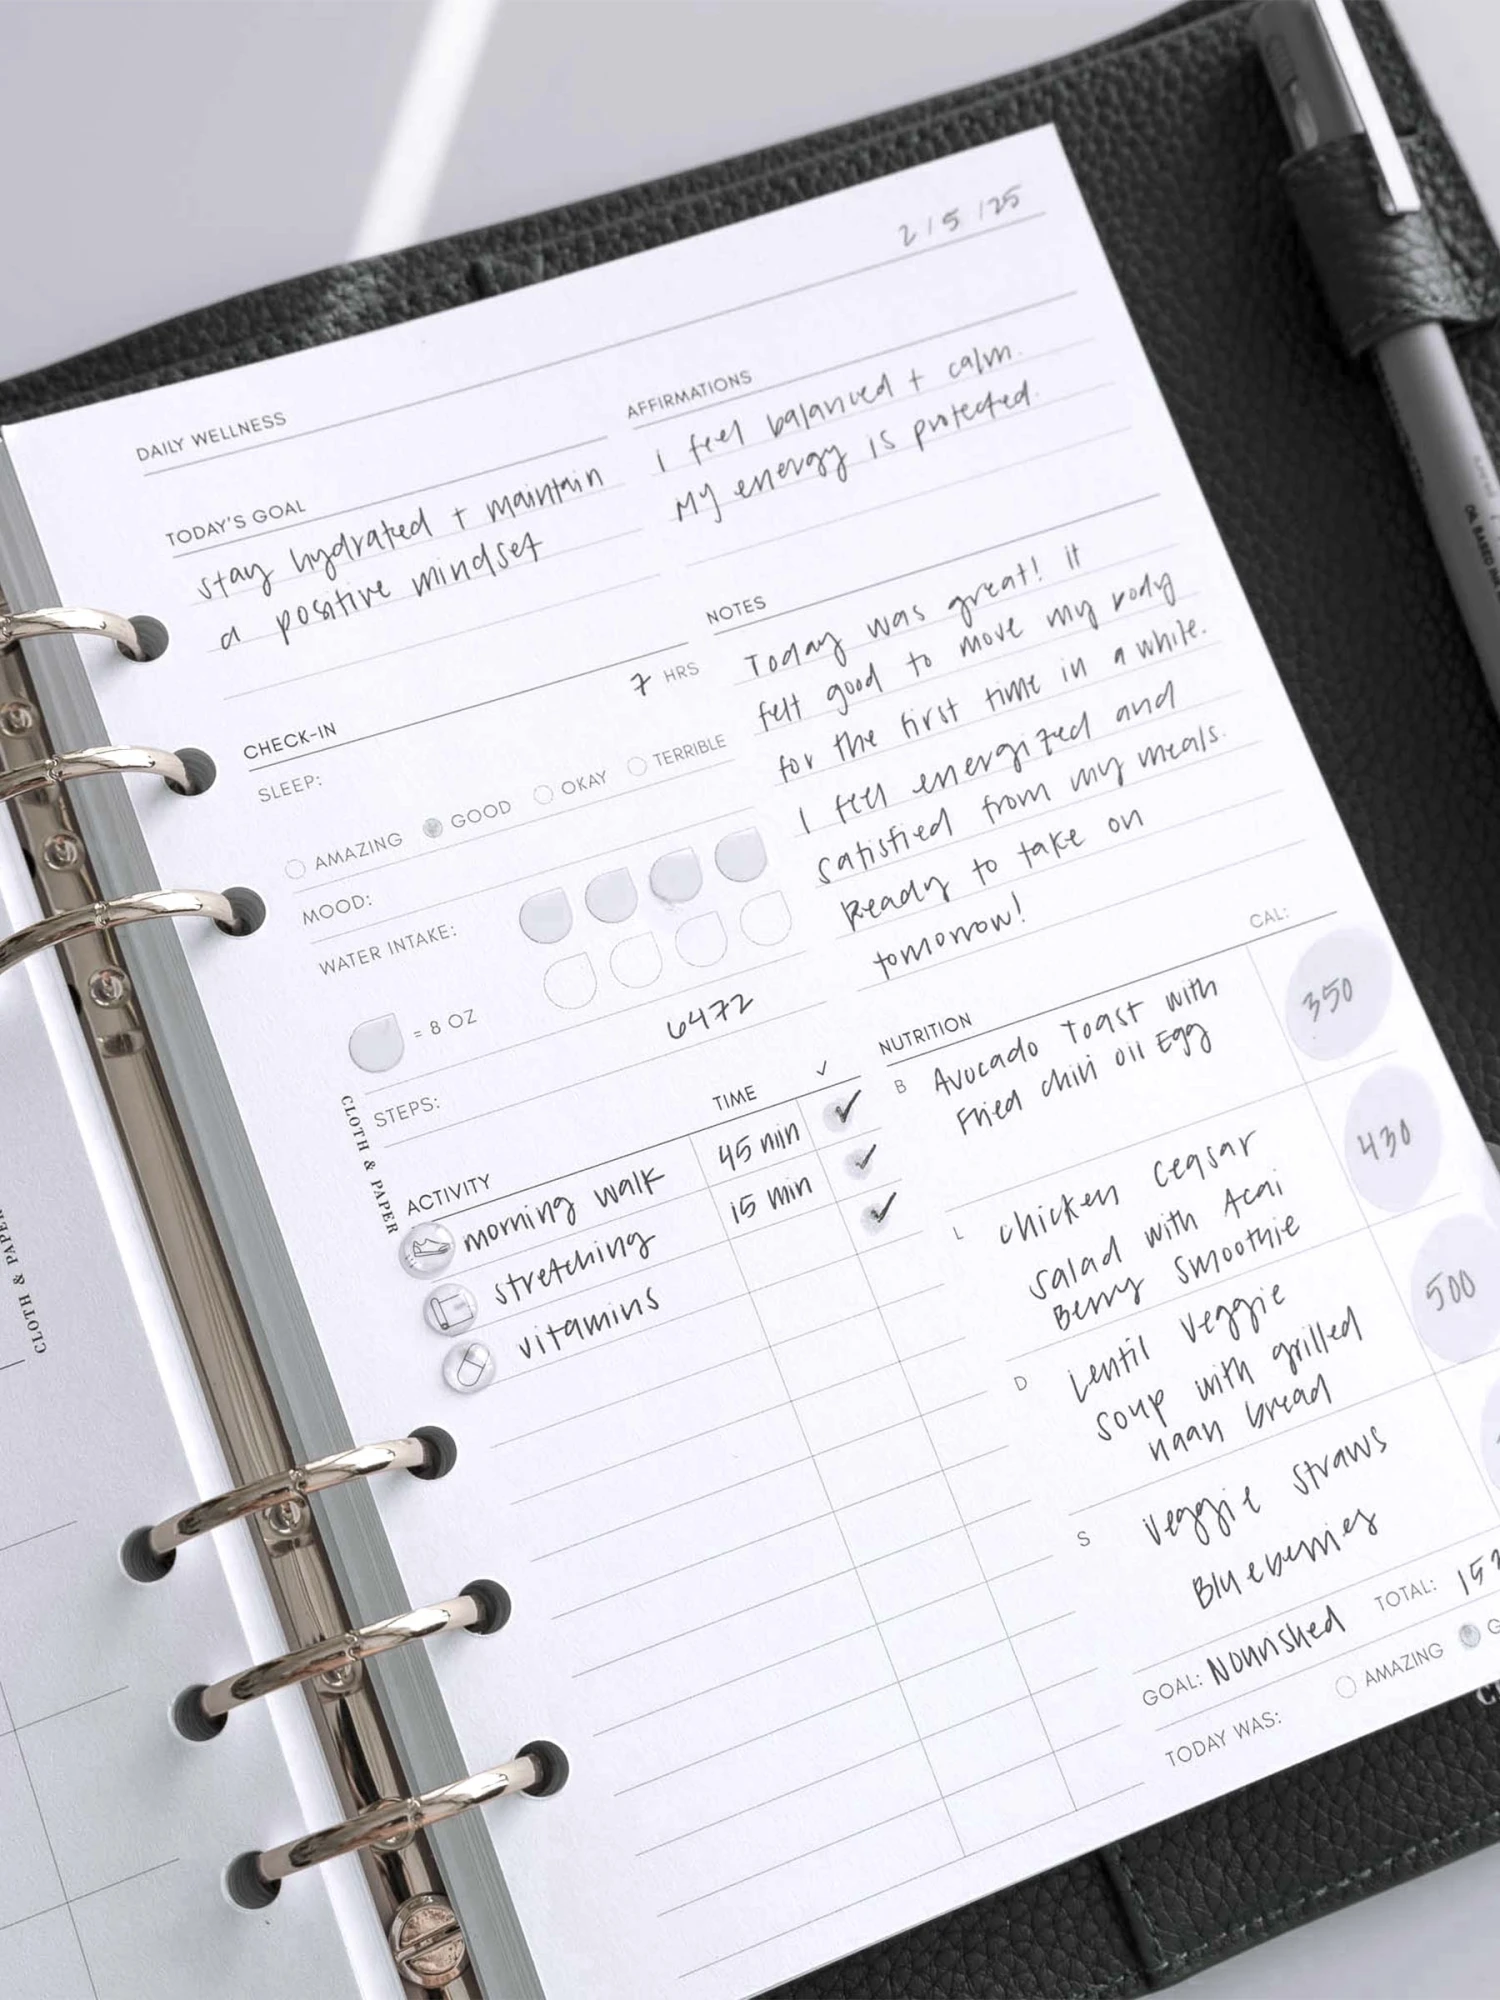 2/5/25
DAILY WELLNESS
TODAY'S GOAL
stay hydrated + maintain
a positive mindset
AFFIRMATIONS
I feel balanced + calm.
My energy is protected.
CHECK-IN
SLEEP: 7 HRS
AMAZING GOOD OKAY TERRIBLE
MOOD:
WATER INTAKE:
= 8 OZ
STEPS: 6472
NOTES
Today was great! it
felt good to move my body
for the first time in a while.
I feel energized and
satisfied from my meals.
Ready to take on
tomorrow!
ACTIVITY TIME ✓
morning walk 45 min ✓
stretching 15 min ✓
vitamins ✓
NUTRITION CAL:
B Avocado Toast with 350
Fried chili oil Egg
L chicken ceasar 430
salad with Acai
Berry smoothie
D Lentil Veggie 500
soup with grilled
naan bread
S Veggie straws
Blueberries
GOAL: Nourished TOTAL:
TODAY WAS: AMAZING
CLOTH & PAPER
CLOTH & PAPER